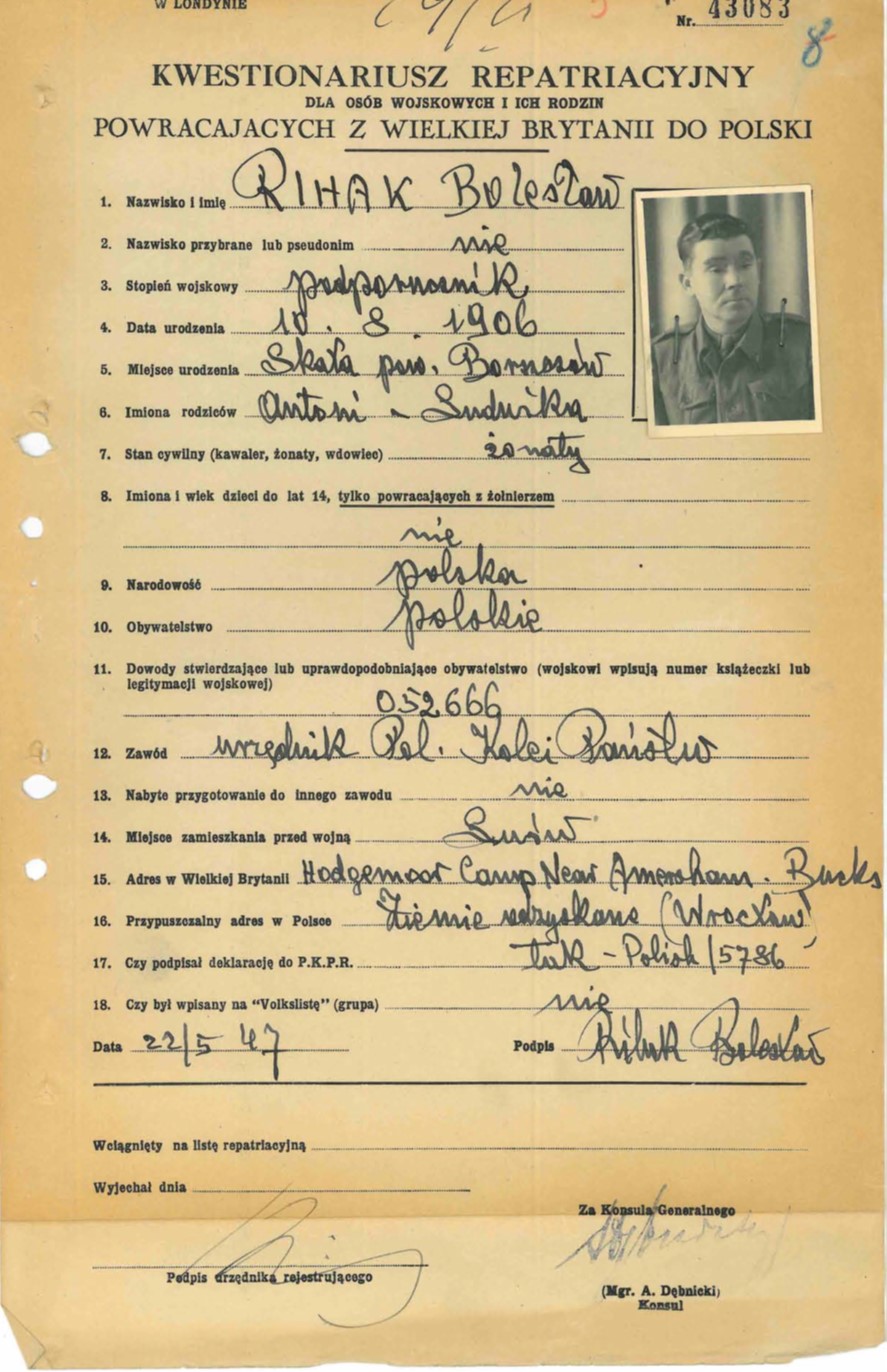 W LONDYNIE
Nr. 43083
8
KWESTIONARIUSZ REPATRIACYJNY
DLA OSÓB WOJSKOWYCH I ICH RODZIN
POWRACAJACYCH Z WIELKIEJ BRYTANII DO POLSKI
1. Nazwisko i imię RIHAK Bolesław
2. Nazwisko przybrane lub pseudonim nie
3. Stopień wojskowy podporucznik
4. Data urodzenia 10. 8. 1906
5. Miejsce urodzenia Skała pow. Borszczów
6. Imiona rodziców Antoni - Ludwika
7. Stan cywilny (kawaler, żonaty, wdowiec) żonaty
8. Imiona i wiek dzieci do lat 14, tylko powracających z żołnierzem
nie
9. Narodowość polska
10. Obywatelstwo polskie
11. Dowody stwierdzające lub uprawdopodobniające obywatelstwo (wojskowi wpisują numer książeczki lub
legitymacji wojskowej)
052666
12. Zawód urzędnik Pol. Kolei Państw
13. Nabyte przygotowanie do innego zawodu nie
14. Miejsce zamieszkania przed wojną Lwów
15. Adres w Wielkiej Brytanii Hodgemoor Camp Near Amersham. Bucks
16. Przypuszczalny adres w Polsce Ziemie odzyskane (Wrocław)
17. Czy podpisał deklarację do P.K.P.R. tak - Polish/5786
18. Czy był wpisany na "Volkslistę" (grupa) nie
Data 22/5 47 Podpis Rihak Bolesław
Wciągnięty na listę repatriacyjną
Wyjechał dnia
Za Konsula Generalnego
Podpis urzędnika rejestrującego
(Mgr. A. Dębnicki)
Konsul